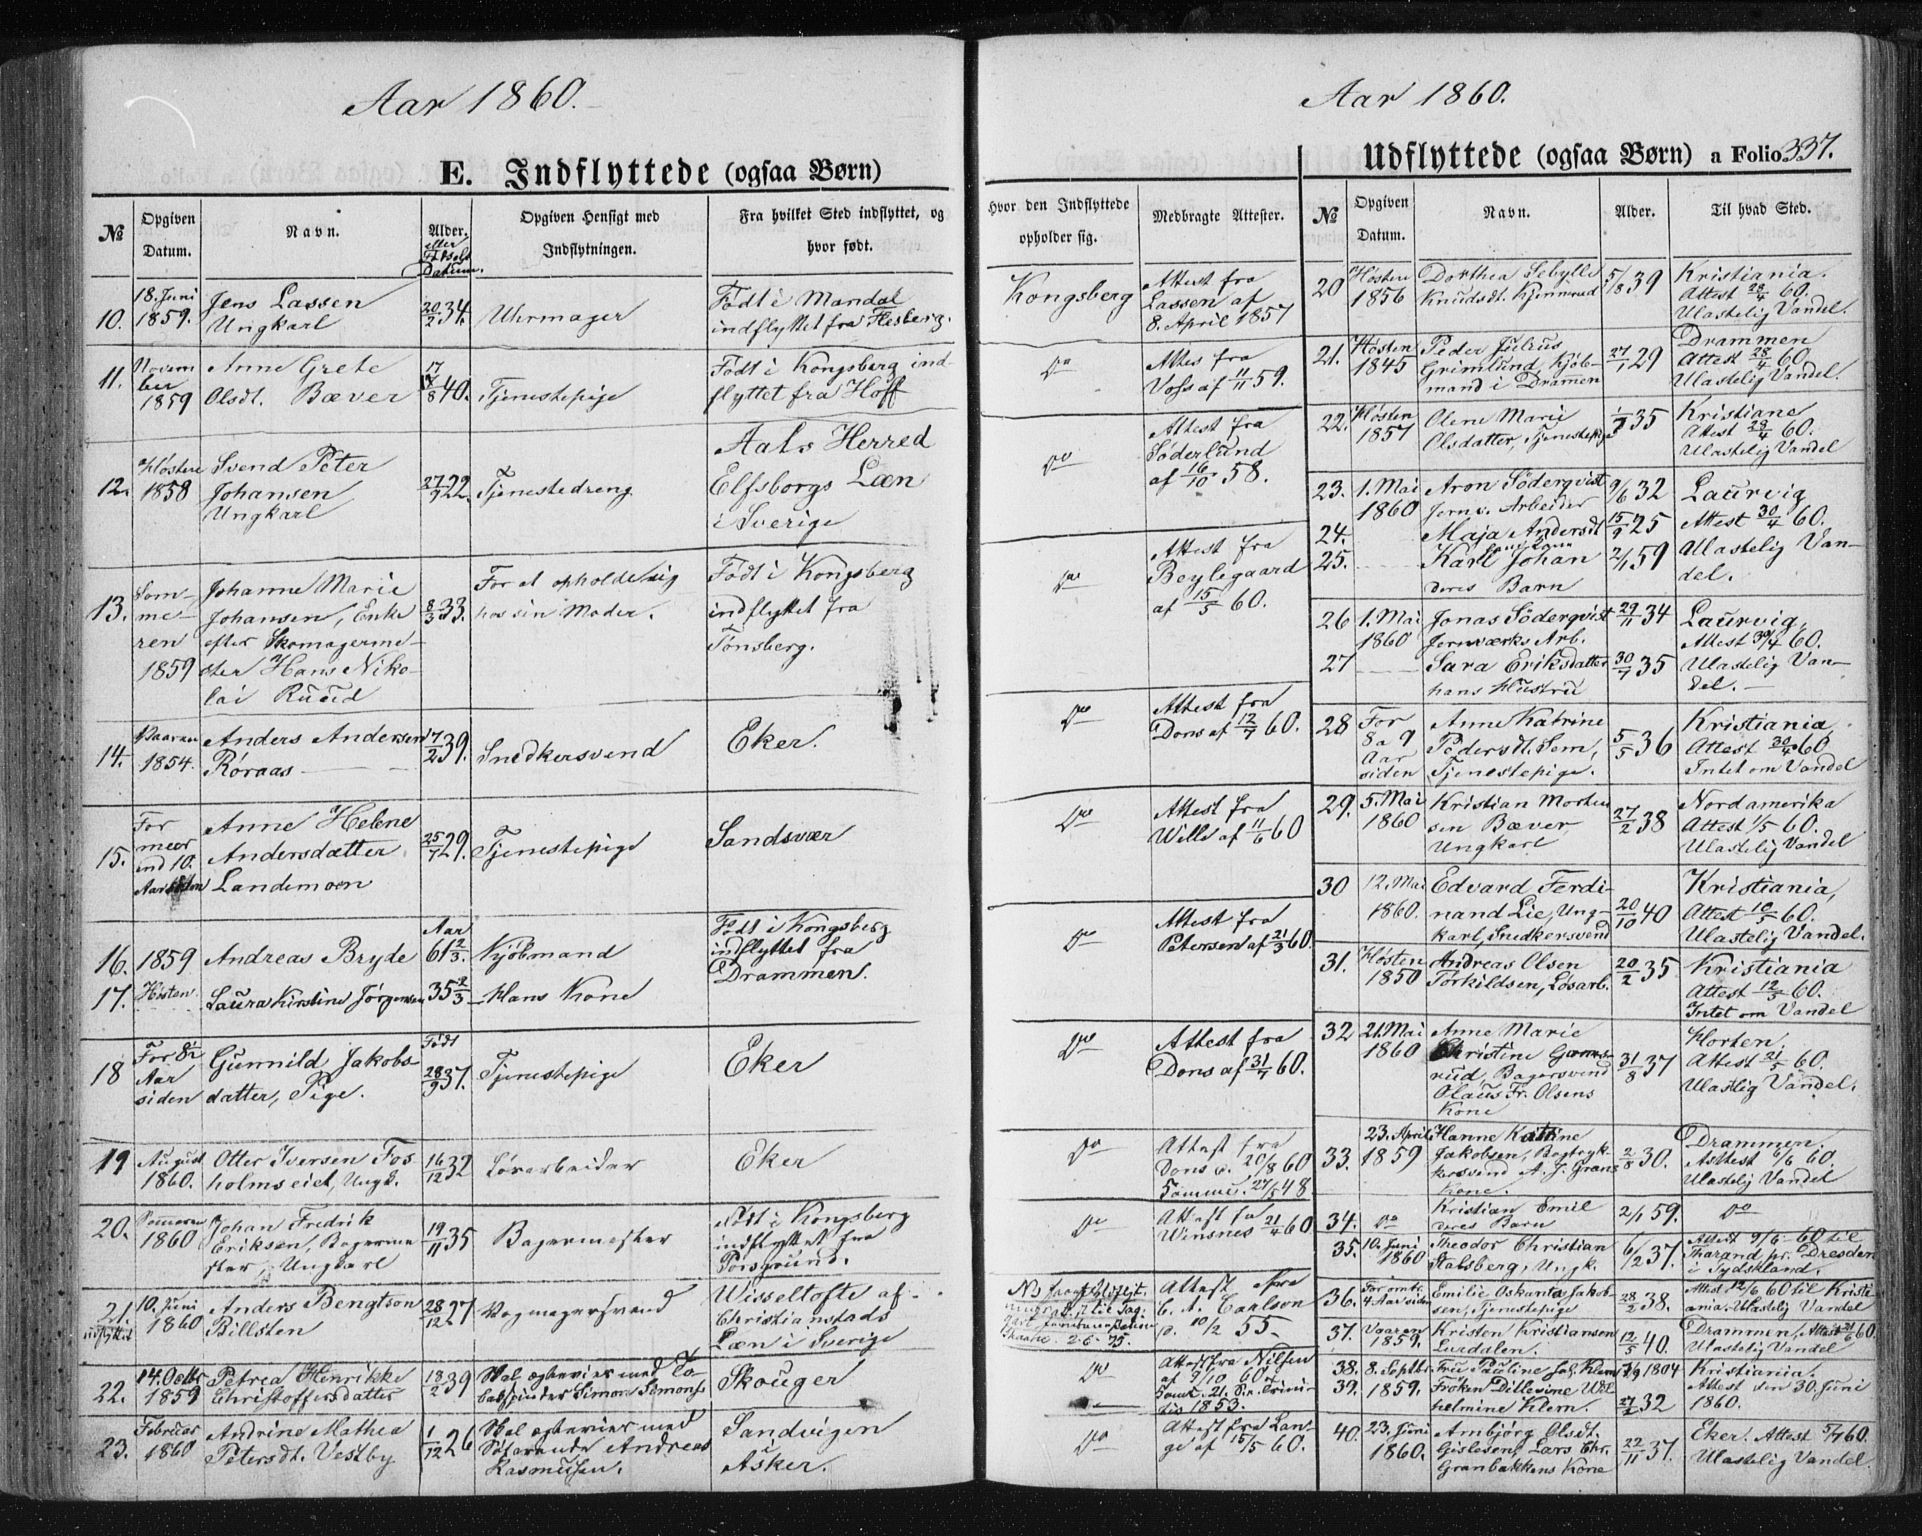 Aar 1860.
E. Indflyttede (ogsaa Børn)
№
Opgiven
Datum.
Navn.
Alder.
eller
Fødsels
Datum.
Opgiven Hensigt med
Indflytningen.
Fra hvilket Sted indflyttet, og
hvor født.
10.
18. Juni
1859.
Jens Lassen
Ungkarl
20/2 34.
Uhrmager
Født i Mandal
indflyttet fra Flesberg.
11.
Novem
ber
1859
Anne Grete
Olsdt. Bæver
17/8 40.
Tjenestepige
Født i Kongsberg ind-
flyttet fra Hoff
12.
Høsten
1858
Svend Peter
Johansen
Ungkarl
27/9 22.
Tjenestedreng
Aals Herred
Elfsborgs Læn
i Sverige
13.
Som-
me-
ren
1859
Johanne Marie
Johansen, Enke
efter Skomagerme-
ster Hans Niko-
lai Ruud
8/3 33.
For at opholde sig
hos sin Moder.
Født i Kongsberg
indflyttet fra
Tønsberg.
14.
Vaaren
1854.
Anders Andersen
Røraas
17/2 39.
Snedkersvend
Eker.
15.
For
meer
end 10.
Aar siden
Anne Helene
Andersdatter
Landemoen
25/7 29.
Tjenestepige
Sandsvær
16.
1859
Andreas Bryde
Aar
61 2/3.
Kjøbmand
Født i Kongsberg
indflyttet fra
Drammen.
17.
Høsten.
Laura Kirstine Jørgensen
35 2/3
Hans Kone
18
For 8½
Aar
siden
Gunnild Jakobs-
datter, Pige.
Født
28/9 37.
Tjenestepige
Eker
19
August
1860.
Otter Iversen Fos-
holmseiet, Ungk.
16/12 32
Løsarbeider
Eker
20.
Sommeren
1860
Johan Fredrik
Eriksen, Bagerme
ster, Ungkarl
19/11 35
Bagermester
Født i Kongsberg
indflyttet fra
Porsgrund.
21.
udflyttet
10. Juni
1860
Anders Bengtson
Billsten
28/12 27
Vognmagersvend
Wisseltofte af
Christianstads
Læn i Sverige
22.
14. Octbr
1859
Petrea Henrikke
Christoffersdatter
18/2 39
Skal ægtevies med To
baksspinder Simon Simons.
Skouger
23.
Februar
1860
Andrine Mathea
Petersdt. Vestby
1/12 26
Skal ægtevies med
Søfarende Andreas
Rasmusen.
Sandvigen
Asker.
Aar 1860.
Udflyttede (ogsaa Børn) a Folio 337.
Hvor den Indflyttede
opholder sig.
Medbragte Attester.
№
Opgiven
Datum.
Navn.
Alder.
Til hvad Sted.
Kongsberg
Attest fra
Lassen af
8. April 1857
Do
Attes fra
Voss af 11/11 59.
Do
Attest fra
Söderlund
af 16/10 58.
Do
Attest fra
Beylegaard
af 15/5 60.
Do
Attest fra
Dons af 12/7 60.
Do
Attest fra
Wille af 11/6 60
Do
Attest fra
Petersen af 21/3 60.
Do
Attest fra
Dons af 31/7 60.
Do
Attest fra
Dons a. 20/8 60
27/5 48
Do
Attest fra
Winsnes 21/4 60
2-6-75.
Attest fra
C. A. Carlson
p. 10/2 55.
Do
Attest fra Nilsen
af 9/10 60
1853.
Do
Attest fra Lan-
ge af 15/5 60.
20
Høsten
1856
Dorthea Sebylle
Knudsdt. Kjennerud
5/8 39
Kristiania.
Attest 28/4 60.
Ulastelig Vandel.
21.
Høsten
1845
Peder Julius
Grimlund, Kjøb-
mand i Dramen
27/1 29
Drammen
Attest 28/4 60.
Ulastelig Vandel.
22.
Høsten
1857
Olene Marie
Olsdatter, Tjenestepige
1/7 35
Kristiane
Attest 28/4 60.
Ulastelig Vandel
23.
1. Mai
1860
Aron Söderqvist
Jernv. Arbeider
9/6 32
Laurvig
Attest 30/4 60.
Ulastelig Van-
del.
24.
Maja Andersdt
hans Kone
15/9 25
25.
Karl Johan
deres Barn
2/1 59
26
1. Mai
1860
Jonas Söderqvist
Jernværks Arb.
29/11 34
Laurvig,
Attest 30/4 60.
Ulastelig Van-
del.
27
Sara Eriksdatter
hans Hustru
30/7 35
28
For
8 a 9
Aar
siden
Anne Katrine
Pedersdt. Sem,
Tjenestepige.
5/5 36
Kristiania.
Attest 30/4 60
Intet om Vandel
29.
5. Mai
1860
Kristian Morten
sen Bæver,
Ungkarl
27/2 38
Nordamerika
Attest 1/5 60.
Ulastelig Vandel
30
12. Mai
1860.
Edvard Ferdi-
nand Lie, Ung-
karl, Snedkersvend
20/10 40
Kristiania,
Attest 10/5 60.
Ulastelig Vandel.
31.
Høsten
1850
Andreas Olsen
Torkildsen, Løsarb.
20/2 35
Kristiania
Attest 12/5 60.
Intet om Vandel
32
21. Mai
1860
Anne Marie
Christine Garns-
rud, Bagersvend
Olaus Fr. Olsens
Kone
31/8 37
Horten.
Attest 21/5 60.
Ulastlig Vandel.
33.
23. April
1859
Hanne Katrine
Jakobsen, Bogtryk-
kersvend A. J. Grans
Kone.
2/8 30.
Drammen.
Asttest 6/6 60.
Ulastelig Vandel
34.
Do
Kristian Emil
deres Barn
2/1 59.
Do
35.
10. Juni
1860
Theodor Christian
Stalsberg, Ungk.
6/2 37.
Attest 9/6-60 til
Tharand pr. Dresden
i Tydskland.
36.
For omtr.
4 Aar siden
Emilie Oskanta Jakob-
sen, Tjenestepige
28/2 38.
Attest 12/6 60 til Kristi
ania. Ulastelig Vandel
37.
Vaaren
1859.
Kristen Kristiansen
Lurdalen.
12/5 40.
Drammen, Attest 21/6 60.
Ulastelig Vandel
38.
8. Septbr
Frue Pauline Klem
1804
Kristiania.
39.
1859.
Frøken Ditlevine Wil
helmine Klem.
27/2 32
Attest den 30. Juni
1860.
40.
23. Juni
1860.
Anbjörg Olsdt.
Gislesen, Lars Chr.
Granbakkens Kone
22/11 37.
Eker. Attest 5/7 60.
Ulastelig Vandel.